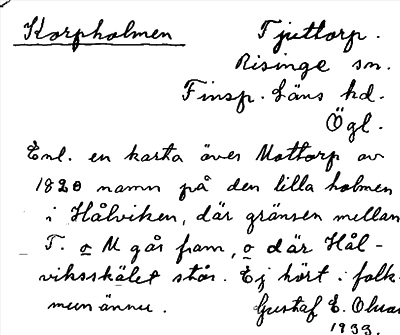 Korpholmen
Tjuttorp.
Risinge sn.
Finsp. Läns hd.
Ögl.
Enl. en karta över Mottorp av
1820 namn på den lilla holmen
i Hålviken, där gränsen mellan
T. o M går fram, o där Hål-
viksskälet står. Ej hört i folk-
mun ännu. Gustaf E.
1933.